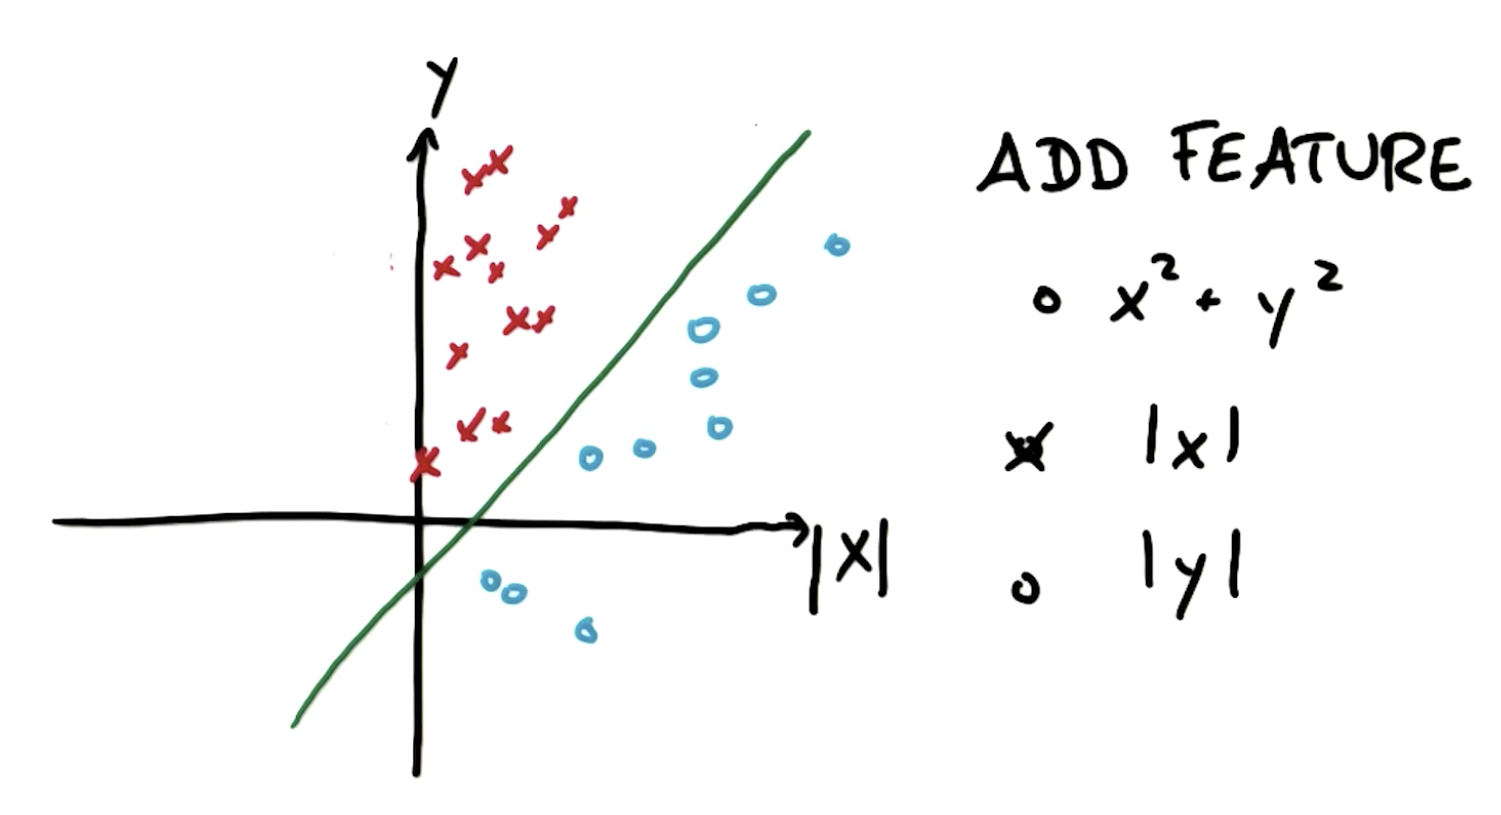 Y
ADD FEATURE
x² + y²
|x|
|X|
|y|